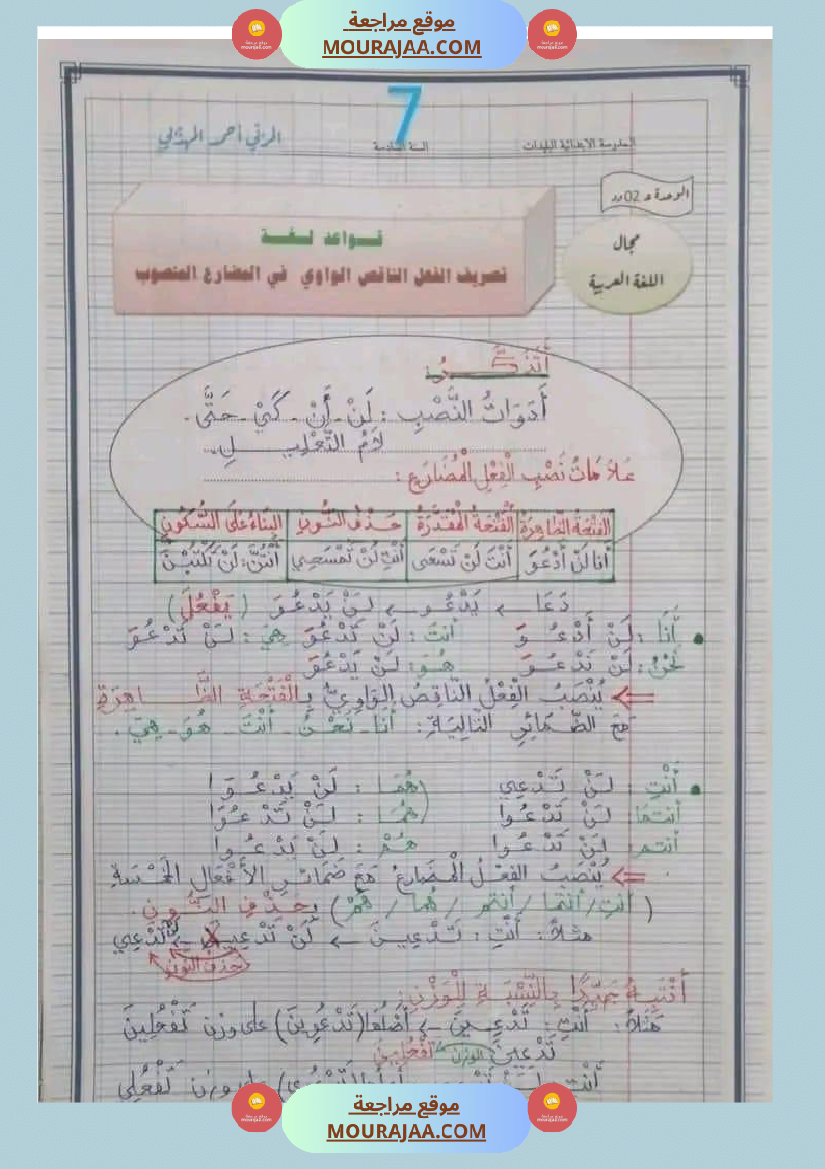 موقع مراجعة
MOURAJAA.COM
7
المدرسة الابتدائية
السنة السادسة
المربّي أحمد
الوحدة 02
مجال
اللغة العربية
قواعد لغة
تصريف الفعل الناقص الواوي في المضارع المنصوب
أَتَذَكَّـــرُ
أَدَوَاتُ النَّصْبِ : لَنْ - أَنْ - كَيْ - حَتَّى -
لاَمُ التَّعْلِيـــلِ.
عَلاَمَاتُ نَصْبِ الْفِعْلِ الْمُضَارِعِ :
الفَتْحَةُ الظَّاهِرَةُ الْفَتْحَةُ الْمُقَدَّرَةُ حَـذْفُ النُّـونِ البِنَاءُ عَلَى السُّكُونِ
أنا لَنْ أَدْعُوَ أَنْتَ لَنْ تَسْعَى أَنْتِ لَنْ تَمْسَحِي أَنْتُنَّ: لَنْ تَكْتُبْنَ
دَعَا ← يَدْعُو ← لَنْ يَدْعُوَ (يَفْعُلَ)
• أَنَا : لَنْ أَدْعُوَ أنتَ : لَنْ تَدْعُوَ هِيَ : لَنْ تَدْعُوَ
نَحْنُ : لَنْ نَدْعُوَ هُوَ : لَنْ يَدْعُوَ
⇐ يُنْصَبُ الْفِعْلُ النَّاقِصُ الوَاوِيُّ بِالْفَتْحَةِ الظَّـاهِرَةِ
مَعَ الضَّمَائِرِ التَّالِيَةِ : أَنَا - نَحْنُ - أَنْتَ - هُوَ - هِيَ .
• أَنْتِ : لَنْ تَدْعِي هُمَا : لَنْ يَدْعُوَا
أنتما : لَنْ تَدْعُوَا هُمَا : لَنْ تَدْعُوَا
أنتم : لَنْ تَدْعُوا هُمْ : لَنْ يَدْعُوا
⇐ يُنْصَبُ الفِعْلُ الْمُضَارِعُ مَعَ ضَمَائِرِ الأَفْعَالِ الْخَمْسَةِ
( أَنْتِ / أَنْتُمَا / أَنْتُمْ / هُمَا / هُمْ ) بِحَذْفِ النُّـونِ.
مَثَلاً : أَنْتِ : تَدْعِينَ ← لَنْ تَدْعِيـنَ ← تَدْعِي
حذف النون
أَنْتَبِـهُ جَيِّدًا بِالنِّسْبَـةِ لِلْوَزْنِ :
مَثَلاً : أَنْتِ : تَدْعِيـنَ ← أَصْلُهَا (تَدْعُوِينَ) على وزن تَفْعُلِينَ
تَدْعِينَ الوزن تَفْعُلِينَ
أَنْتِ لَنْ على وزن تَفْعُلِي
موقع مراجعة
MOURAJAA.COM